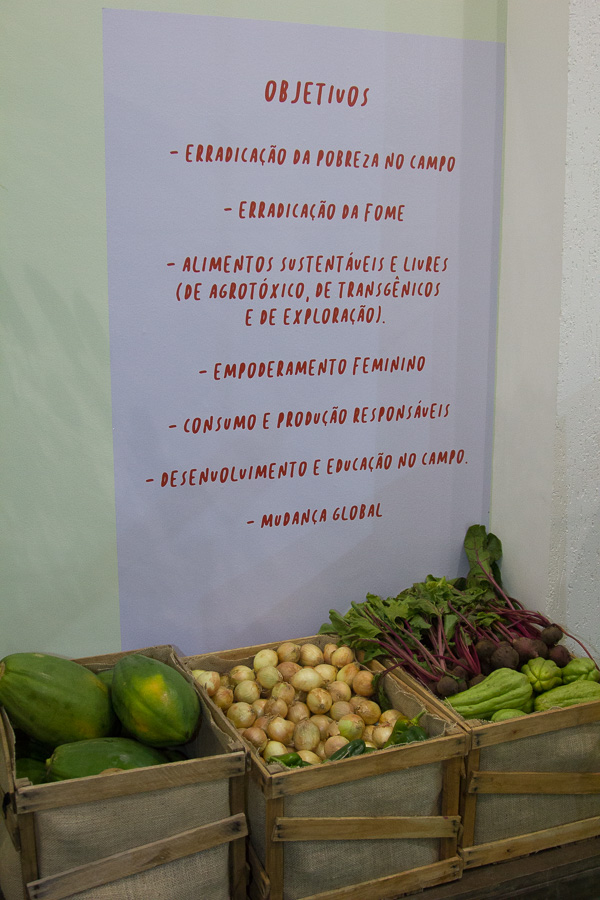 OBJETIVOS
- ERRADICAÇÃO DA POBREZA NO CAMPO
- ERRADICAÇÃO DA FOME
- ALIMENTOS SUSTENTÁVEIS E LIVRES
(DE AGROTÓXICO, DE TRANSGÊNICOS
E DE EXPLORAÇÃO).
- EMPODERAMENTO FEMININO
- CONSUMO E PRODUÇÃO RESPONSÁVEIS
- DESENVOLVIMENTO E EDUCAÇÃO NO CAMPO.
- MUDANÇA GLOBAL